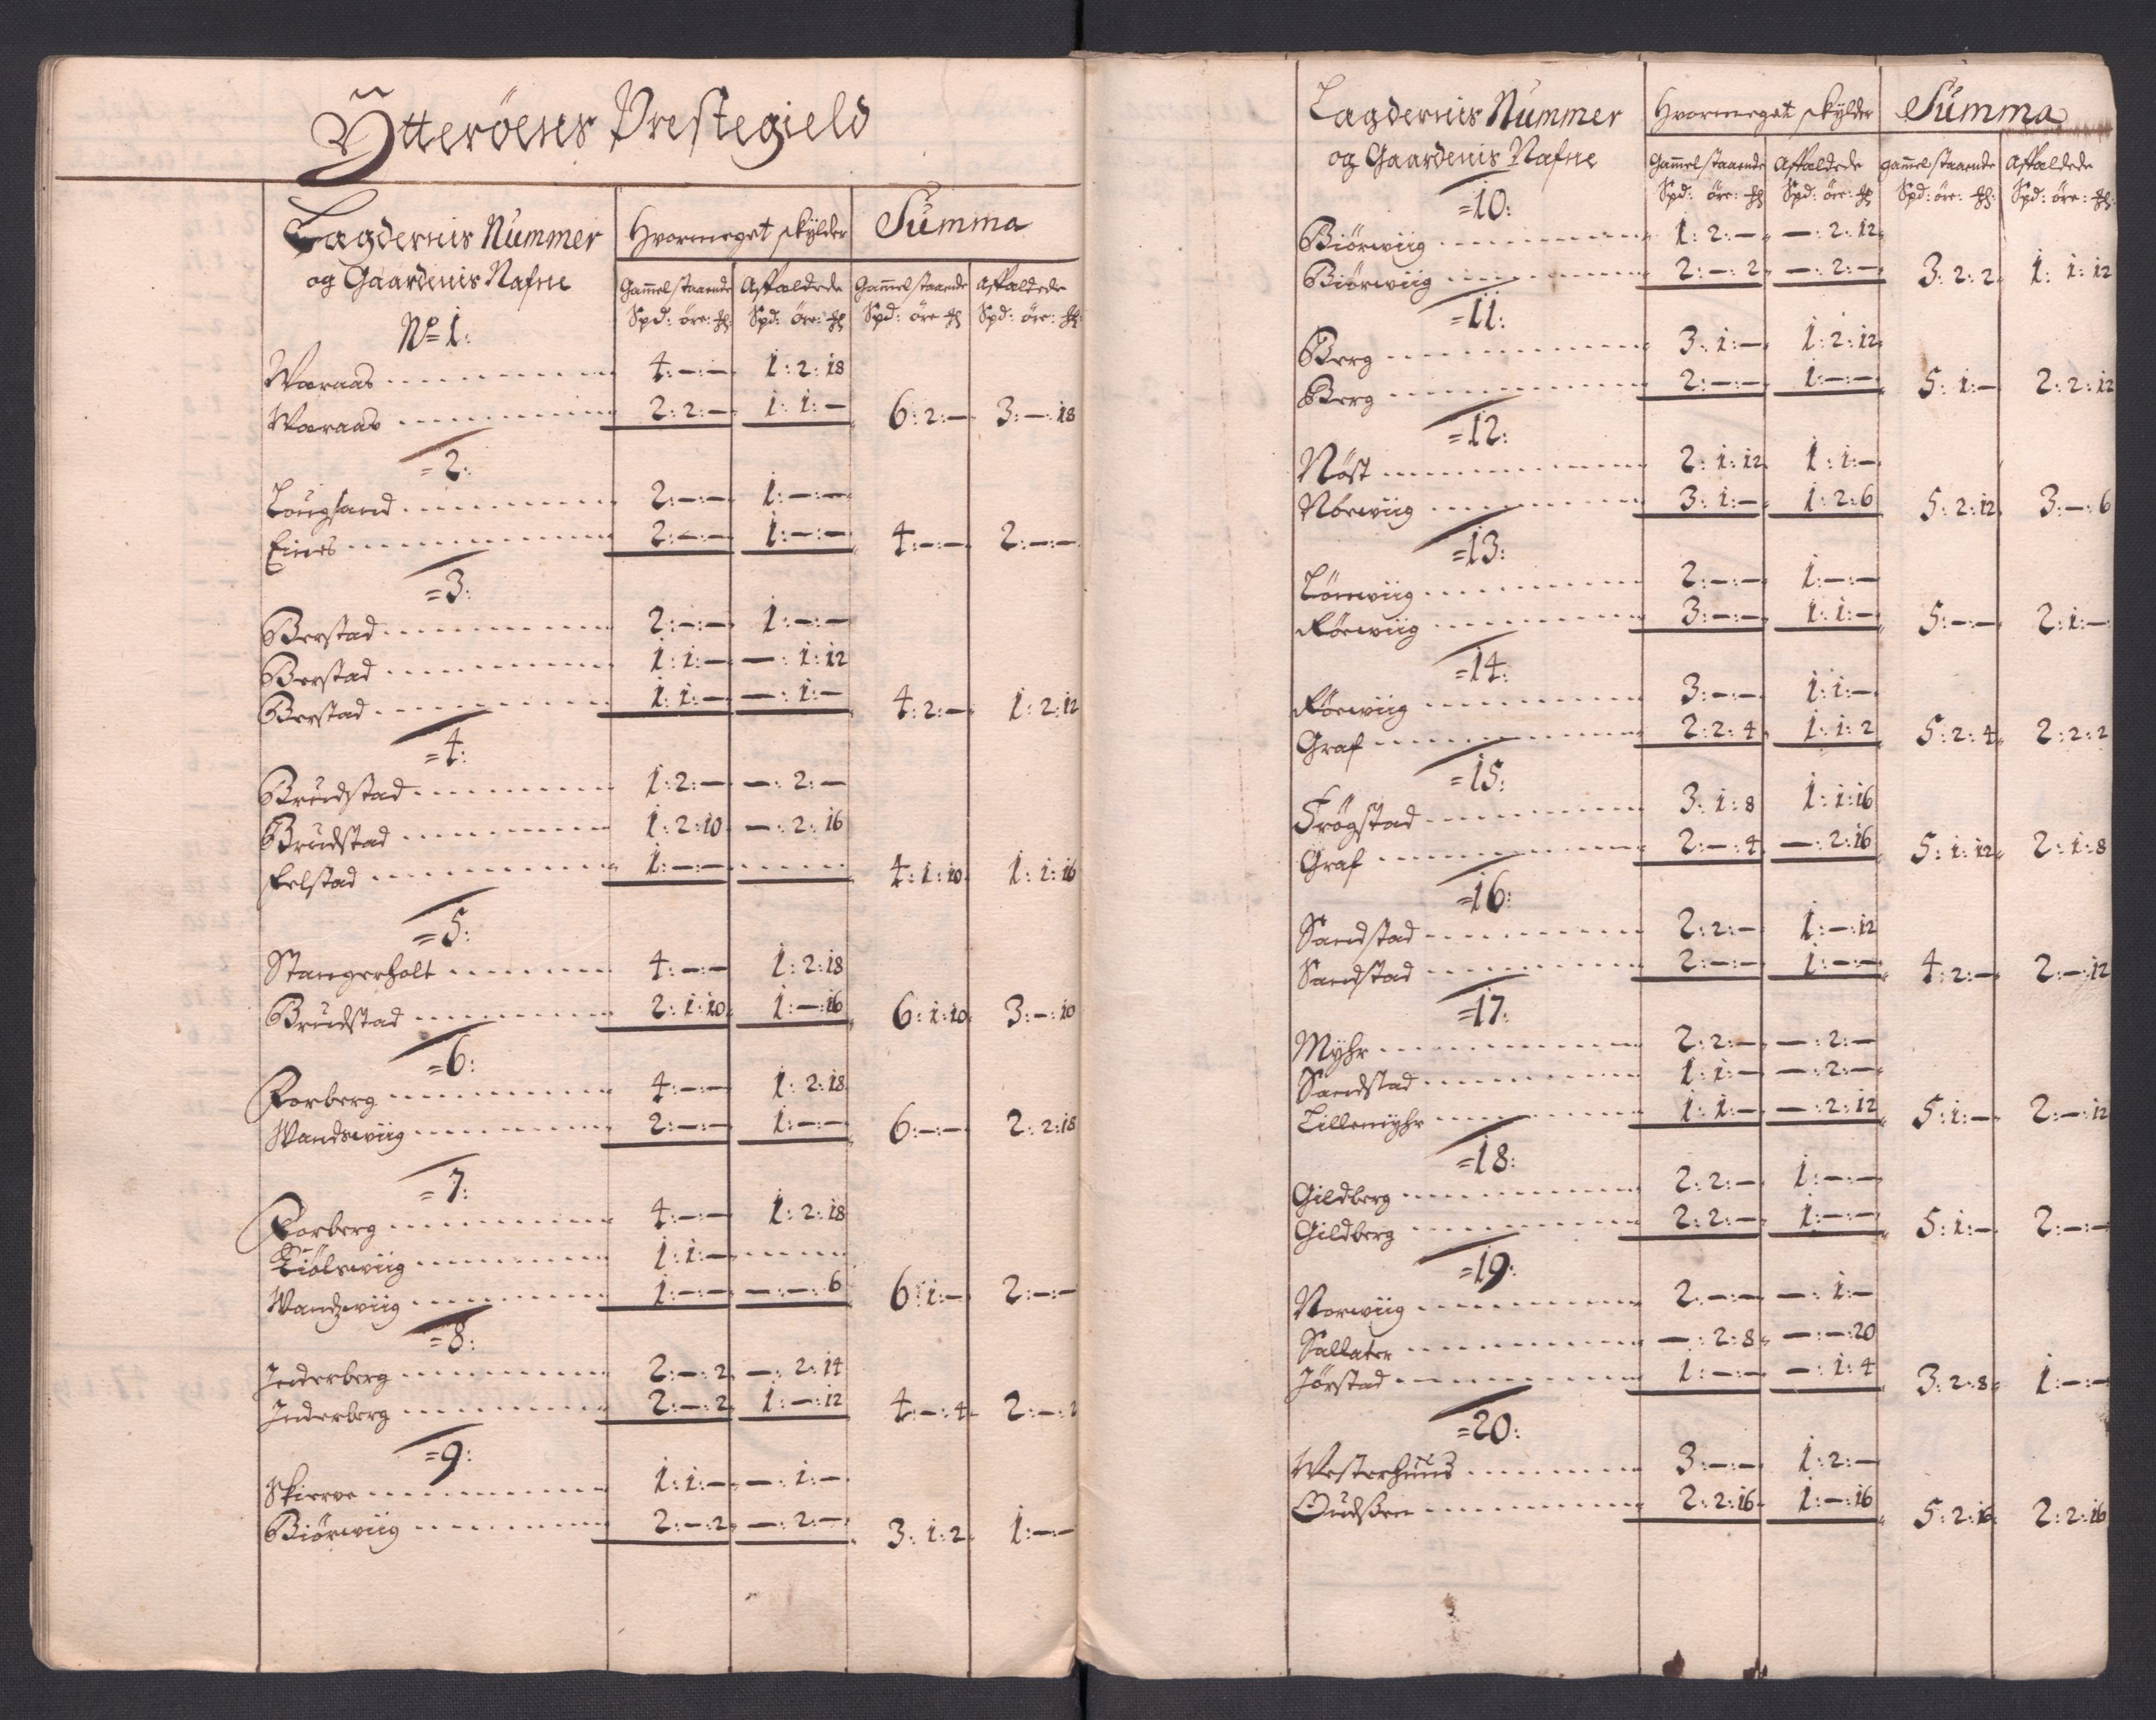 Ytteröens Prestegield
Lagdernis Nummer Hvormeget skylder Summa
og Gaardenis Nafne Gammel staaende Affældede Gammel staaende Affældede
Spd: öre: Spd: öre: Spd: öre Spd: öre:
No 1:
Waraas 4:—:— 1:2:18
Waraas 2:2:— 1:1:— 6:2:— 3:—:18
=2:
Lougsand 2:—:— 1:—:—
Eines 2:—:— 1:—:— 4:—:— 2:—:—
=3:
Berstad 2:—:— 1:—:—
Berstad 1:1:— —:1:12
Berstad 1:1:— —:1:— 4:2:— 1:2:12
=4:
Brudstad 1:2:— —:2:—
Brudstad 1:2:10 —:2:16
Felstad 1:—:— 4:1:10 1:1:16
=5:
Stangerholt 4:—:— 1:2:18
Brudstad 2:1:10 1:—:16 6:1:10 3:—:10
=6:
Forberg 4:—:— 1:2:18
Wandswiig 2:—:— 1:—:— 6:—:— 2:2:18
=7:
Forberg 4:—:— 1:2:18
Kiölswiig 1:1:—
Wandzwiig 1:—:— —:—:6 6:1:— 2:—:—
=8:
Inderberg 2:—:2 —:2:14
Inderberg 2:—:2 1:—:12 4:—:4 2:—:2
=9:
Skierve 1:1:— —:1:—
Biörwiig 2:—:2 —:2:— 3:1:2 1:—:—
Lagdernis Nummer Hvormeget skylder Summa
og Gaardenis Nafne Gammel staaende Affældede gammel staaende Affældede
Spd: öre: Spd: öre: Spd: öre: Spd: öre:
=10:
Biörwiig 1:2:— —:2:12
Biörwiig 2:—:2 —:2:— 3:2:2 1:1:12
=11:
Berg 3:1:— 1:2:12
Berg 2:—:— 1:—:— 5:1:— 2:2:12
=12:
Nöst 2:1:12 1:1:—
Nörwiig 3:1:— 1:2:6 5:2:12 3:—:6
=13:
Lönwiig 2:—:— 1:—:—
Rörwiig 3:—:— 1:1:— 5:—:— 2:1:—
=14:
Rörwiig 3:—:— 1:1:—
Graf 2:2:4 1:1:2 5:2:4 2:2:2
=15:
Frögstad 3:1:8 1:1:16
Graf 2:—:4 —:2:16 5:1:12 2:1:8
=16:
Sandstad 2:2:— 1:—:12
Sandstad 2:—:— 1:—:— 4:2:— 2:—:12
=17:
Myhr 2:2:— —:2:—
Sandstad 1:1:— —:2:—
Lillemyhr 1:1:— —:2:12 5:1:— 2:—:12
=18:
Gildberg 2:2:— 1:—:—
Gildberg 2:2:— 1:—:— 5:1:— 2:—:—
=19:
Norwiig 2:—:— —:1:—
Sallater —:2:8 —:—:20
Jörstad 1:—:— —:1:4 3:2:8 1:—:—
=20:
Westerhuus 3:—:— 1:2:—
Oudßen 2:2:16 1:—:16 5:2:16 2:2:16